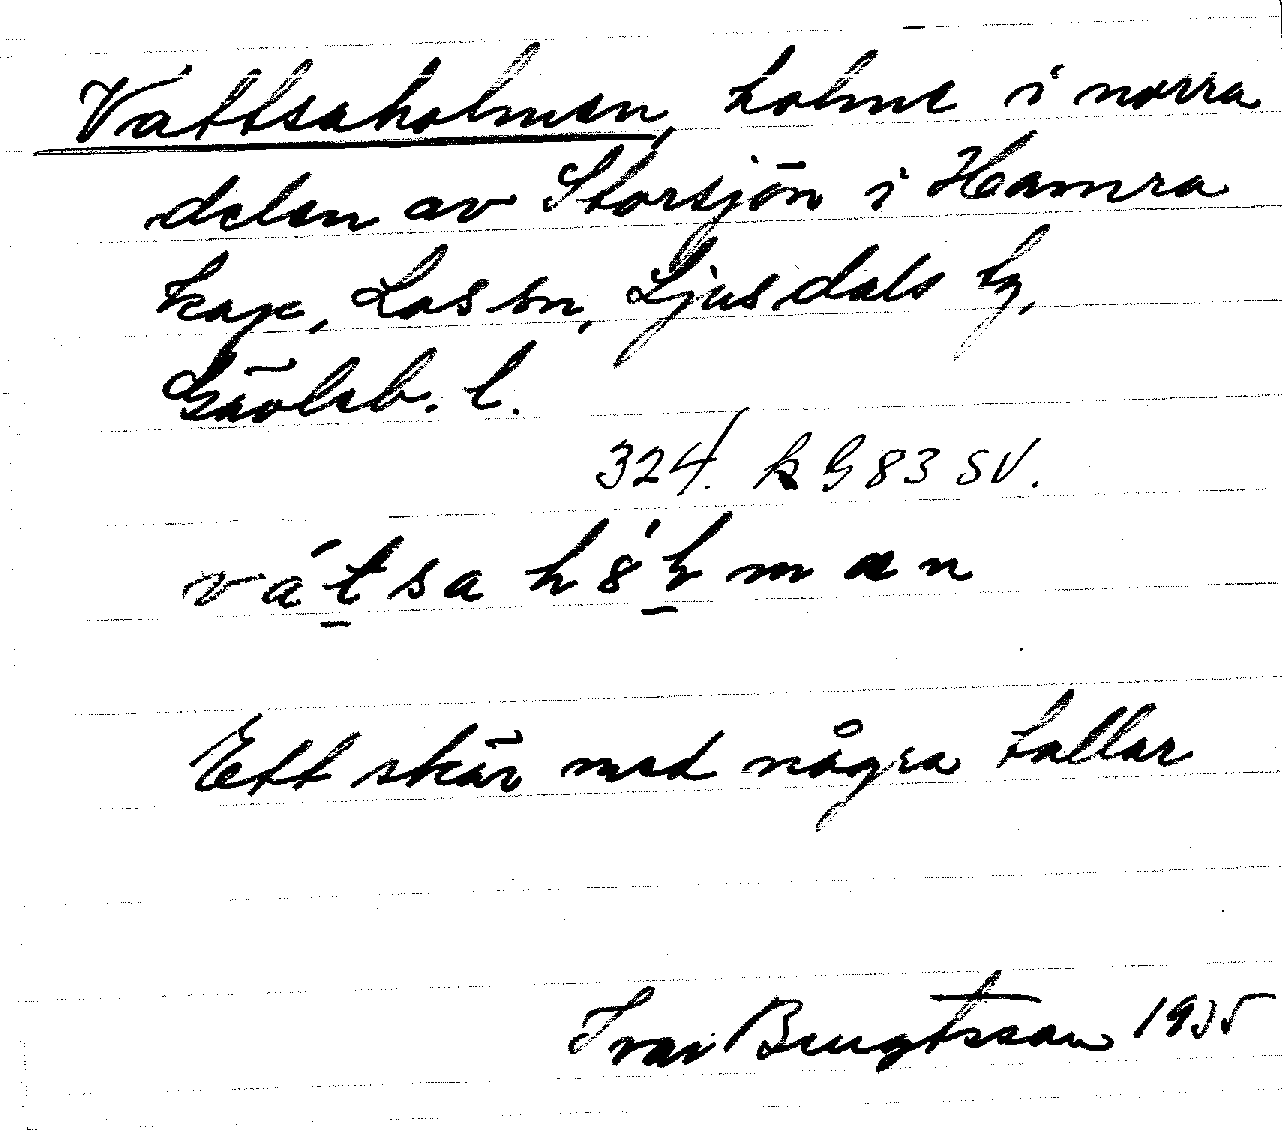 Vattsaholmen, holme i norra
delen av Storsjön i Hamra
kap, Los sn, Ljusdals tg,
Gävleb. l.
324. k G 83 SV.
vát̠sa hö́l̠man
Ett skär med några tallar
Ivar Bengtsson 1935